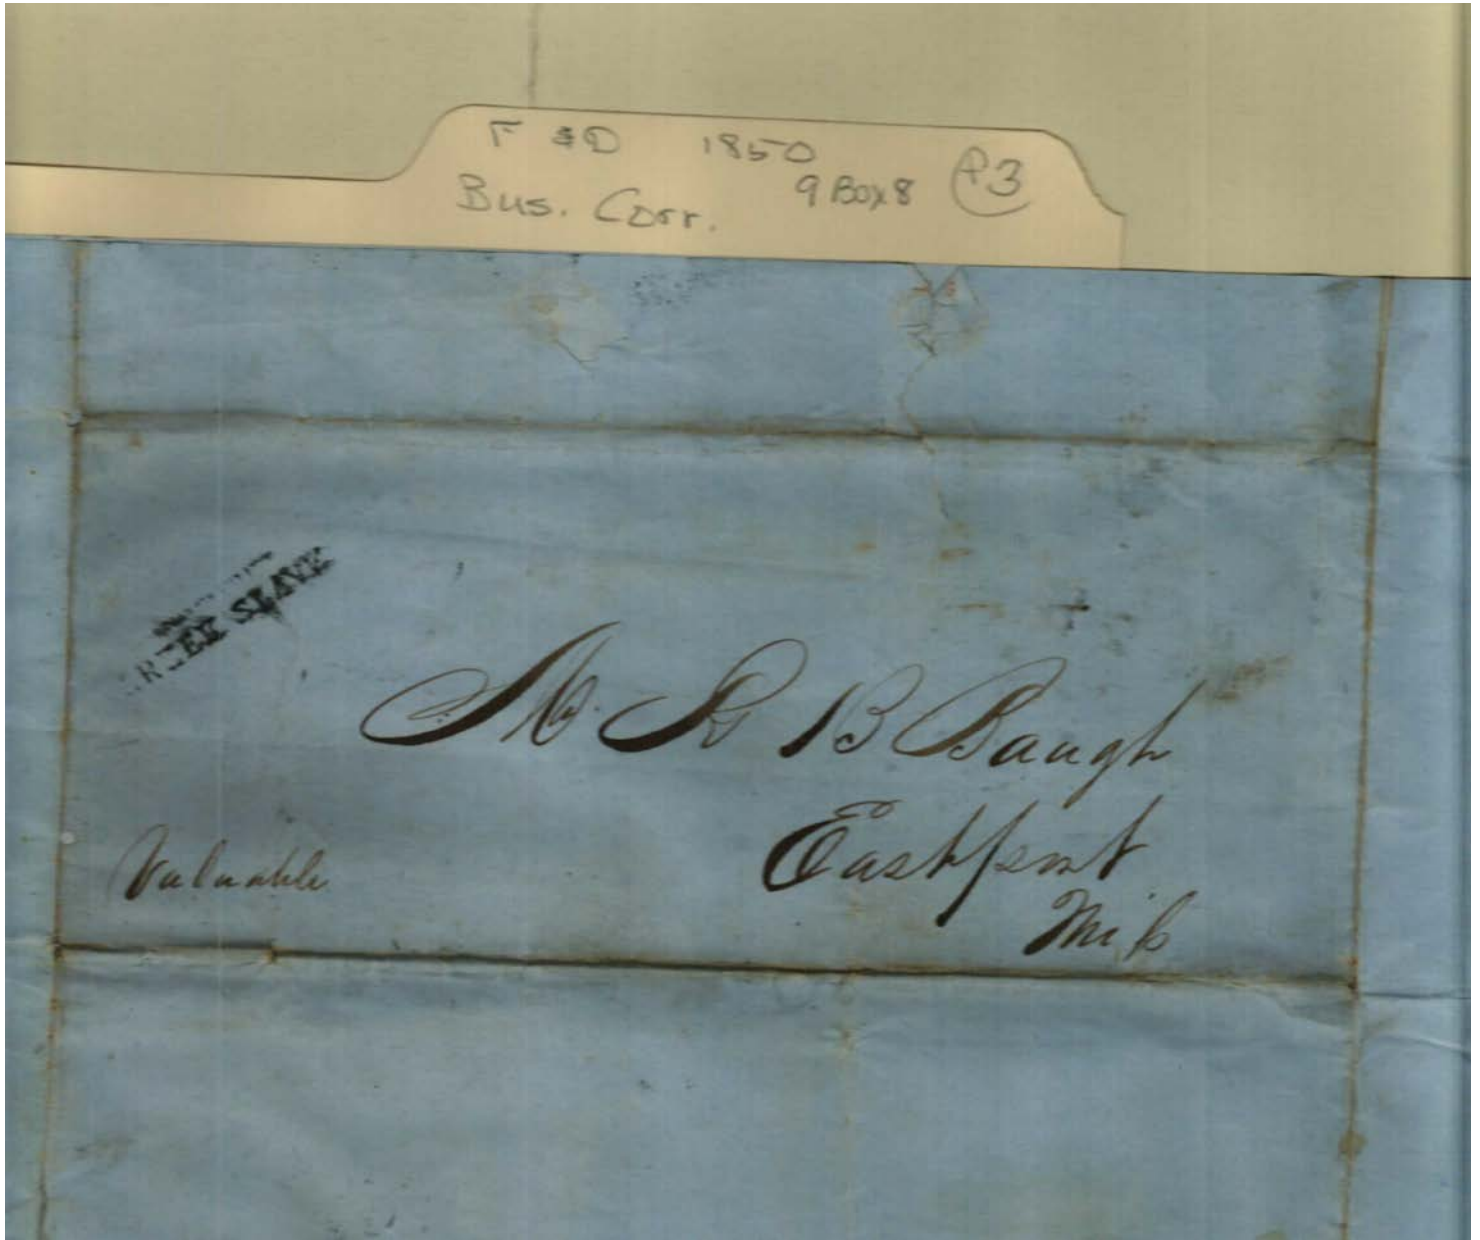 F & D 1850
Bus. Corr. 9 Box 8 P3
SLAVE
Mr R B Baugh
Eastport
Valuable
Miss